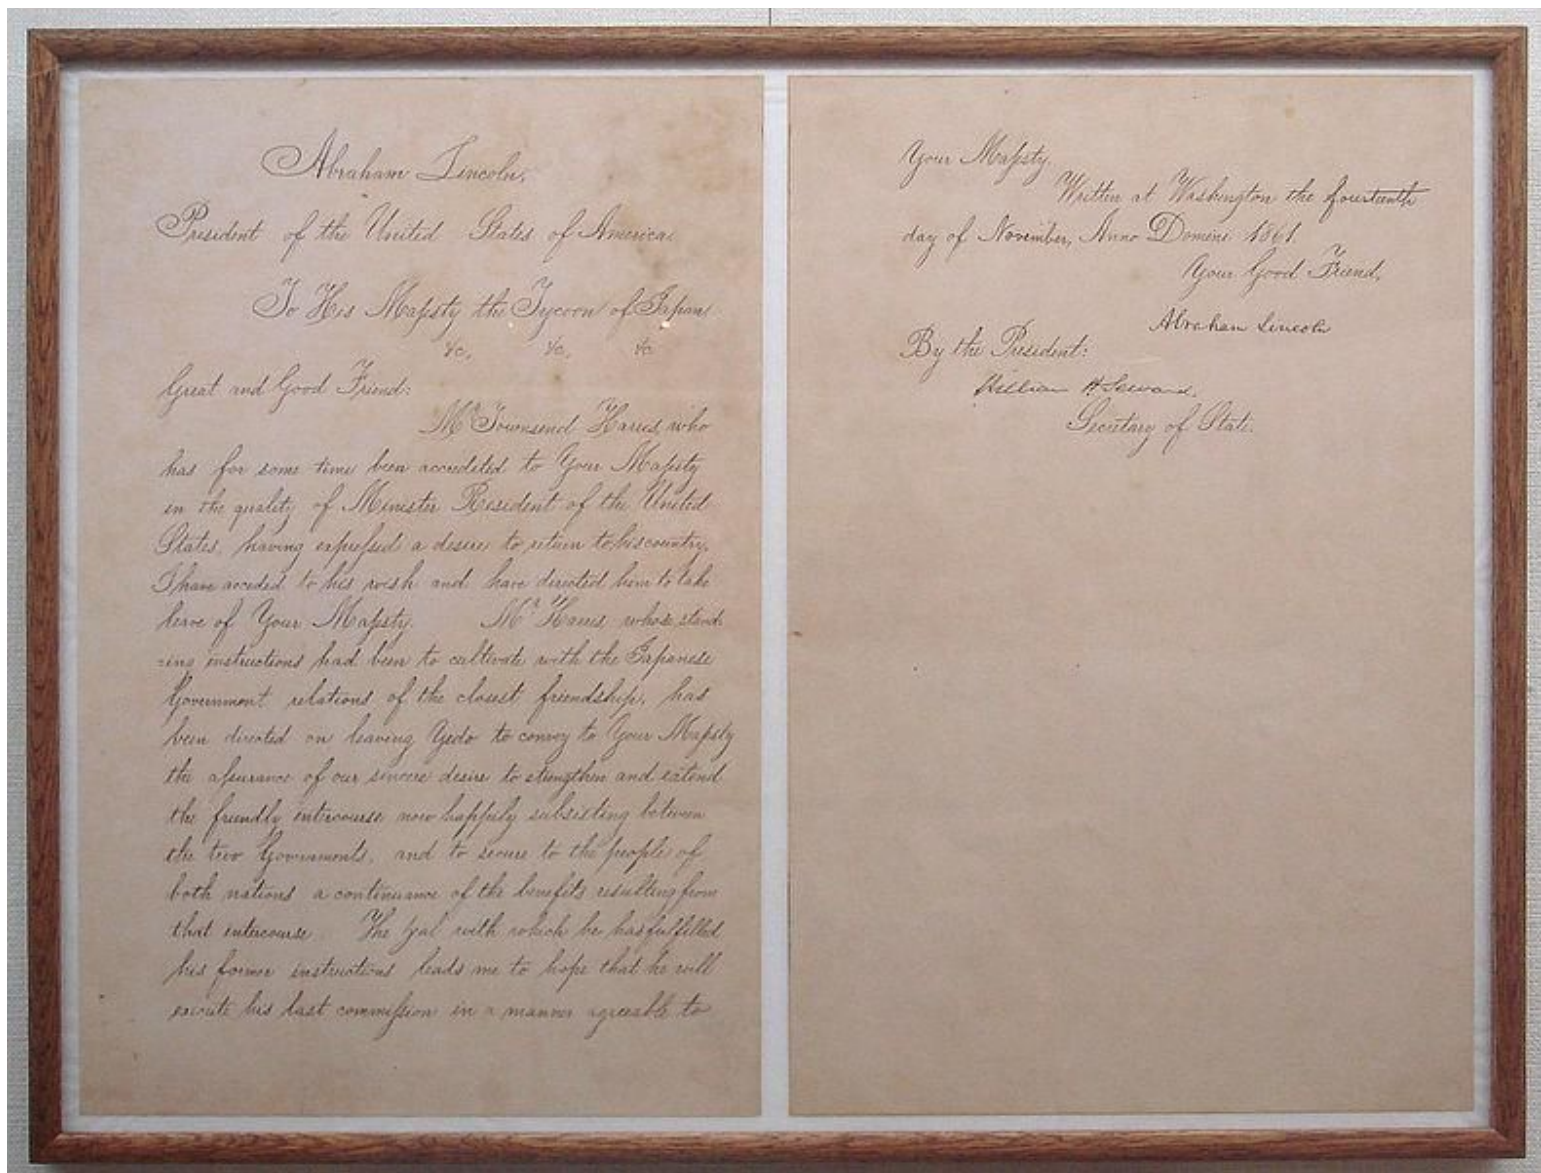 Abraham Lincoln,
President of the United States of America
To His Majesty the Tycoon of Japan
&c, &c, &c
Great and Good Friend:
Mr Townsend Harris, who
has for some time been accredited to Your Majesty
in the quality of Minister Resident of the United
States, having expressed a desire to return to his country,
I have acceded to his wish and have directed him to take
leave of Your Majesty. Mr Harris whose stand-
-ing instructions had been to cultivate with the Japanese
Government relations of the closest friendship, has
been directed on leaving Yedo to convey to Your Majesty
the assurance of our sincere desire to strengthen and extend
the friendly intercourse now happily subsisting between
the two Governments, and to secure to the people of
both nations a continuance of the benefits resulting from
that intercourse. The zeal with which he has fulfilled
his former instructions leads me to hope that he will
execute his last commission in a manner agreeable to
Your Majesty.
Written at Washington the fourteenth
day of November, Anno Domini 1861.
Your Good Friend,
Abraham Lincoln
By the President:
William H Seward,
Secretary of State.